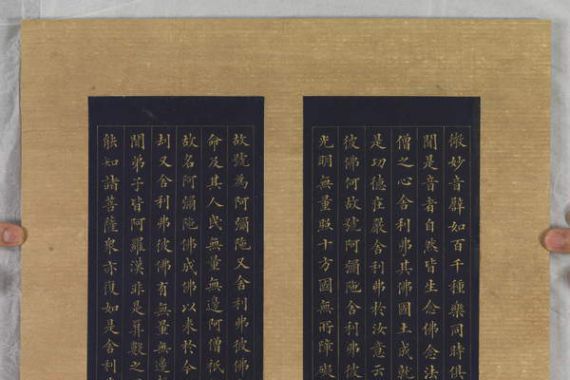 微妙音譬如百千種樂同時俱
聞是音者自然皆生念佛念法
僧之心舍利弗其佛國土成就
是功德莊嚴舍利弗於汝意云
彼佛何故號阿彌陀舍利弗彼
光明無量照十方國無所障礙
故號為阿彌陀又舍利弗彼佛
命及其人民無量無邊阿僧祇
故名阿彌陀佛成佛以來於今
劫又舍利弗彼佛有無量無邊
聞弟子皆阿羅漢非是算數之
能知諸菩薩衆亦復如是舍利